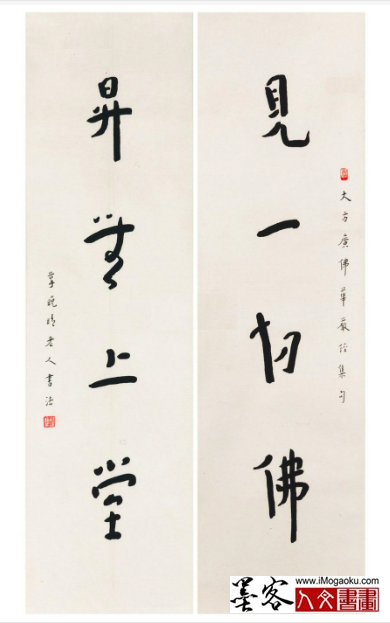 大方廣佛華嚴經集句
見一切佛
昇無上堂
學晚晴老人書法
墨客
www.iMogaoku.com
人文書畫